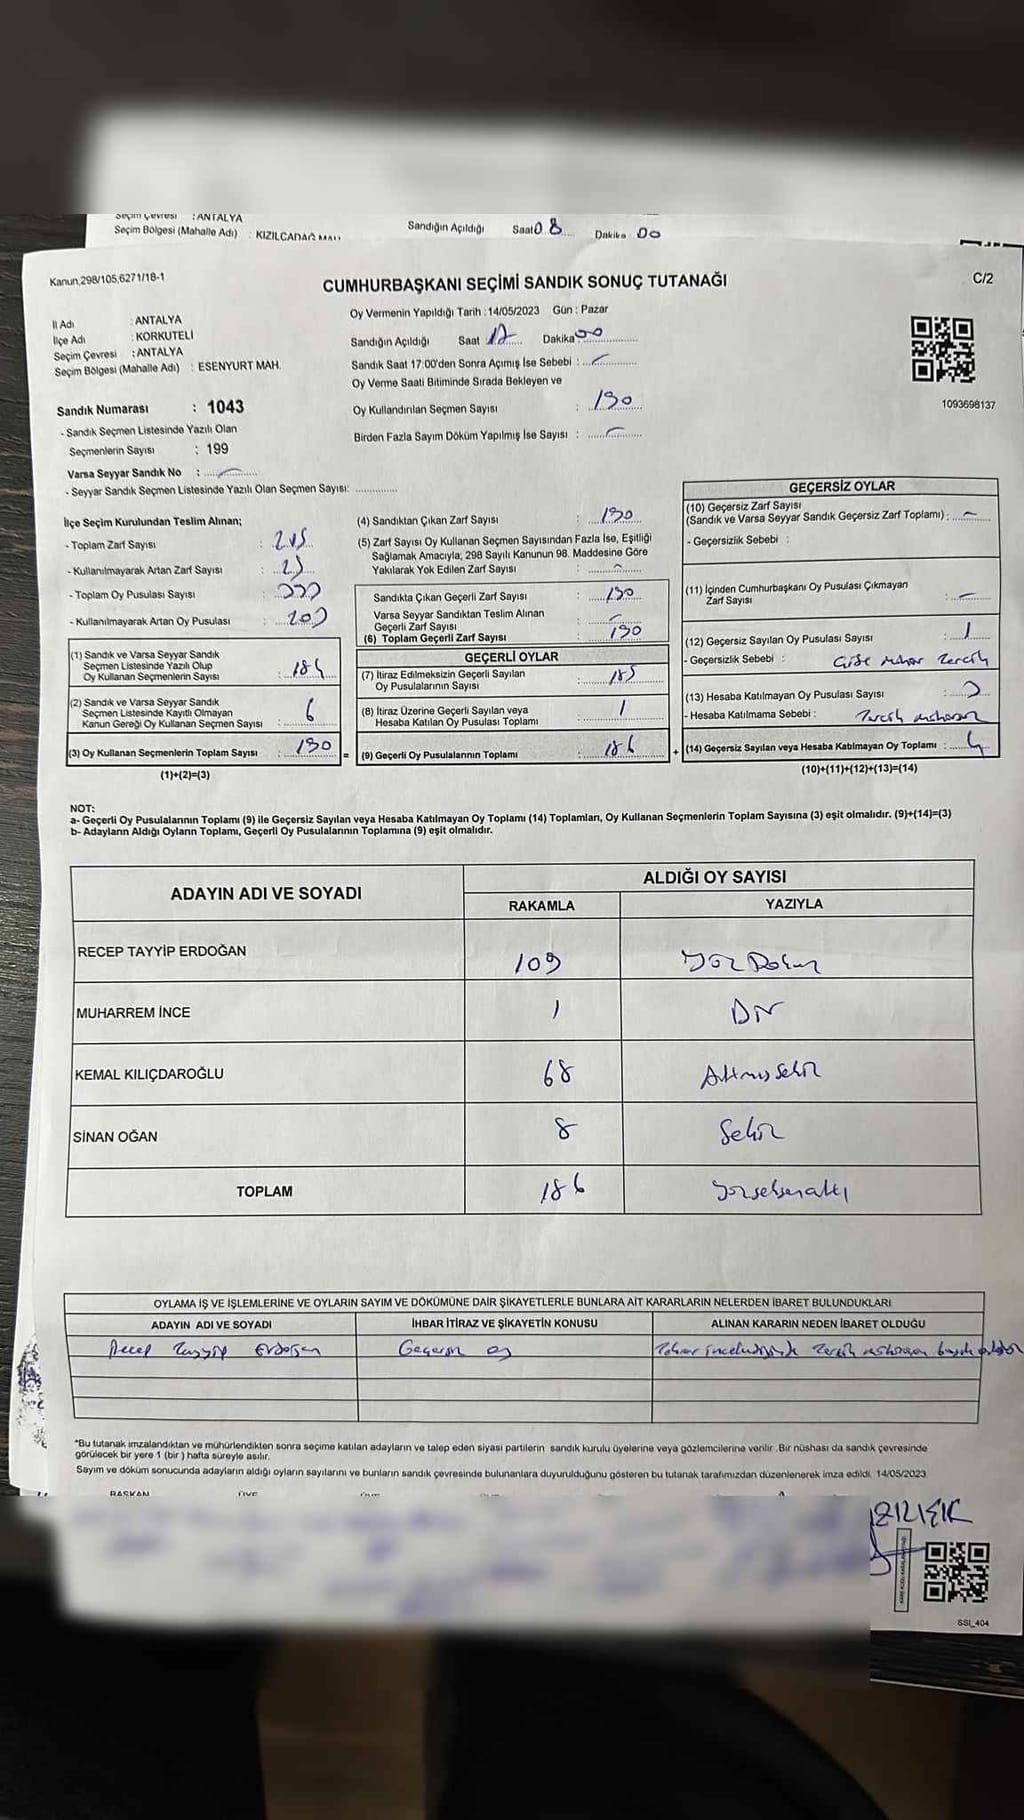 Seçim Çevresi : ANTALYA
Seçim Bölgesi (Mahalle Adı) : KIZILCADAĞ MAH.
Sandığın Açıldığı Saat 08 Dakika 00
Kanun,298/105,6271/18-1
CUMHURBAŞKANI SEÇİMİ SANDIK SONUÇ TUTANAĞI
C/2
İl Adı : ANTALYA
İlçe Adı : KORKUTELİ
Seçim Çevresi : ANTALYA
Seçim Bölgesi (Mahalle Adı) : ESENYURT MAH.
Oy Vermenin Yapıldığı Tarih : 14/05/2023 Gün : Pazar
Sandığın Açıldığı Saat 17 Dakika 00
Sandık Saat 17:00'den Sonra Açımış İse Sebebi : –
Oy Verme Saati Bitiminde Sırada Bekleyen ve
Oy Kullandırılan Seçmen Sayısı : 190
Birden Fazla Sayım Döküm Yapılmış İse Sayısı : –
1093698137
Sandık Numarası : 1043
- Sandık Seçmen Listesinde Yazılı Olan
Seçmenlerin Sayısı : 199
Varsa Seyyar Sandık No : –
- Seyyar Sandık Seçmen Listesinde Yazılı Olan Seçmen Sayısı:
İlçe Seçim Kurulundan Teslim Alınan;
- Toplam Zarf Sayısı : 215
- Kullanılmayarak Artan Zarf Sayısı : 25
- Toplam Oy Pusulası Sayısı :
- Kullanılmayarak Artan Oy Pusulası :
(1) Sandık ve Varsa Seyyar Sandık
Seçmen Listesinde Yazılı Olup
Oy Kullanan Seçmenlerin Sayısı : 184
(2) Sandık ve Varsa Seyyar Sandık
Seçmen Listesinde Kayıtlı Olmayan
Kanun Gereği Oy Kullanan Seçmen Sayısı : 6
(3) Oy Kullanan Seçmenlerin Toplam Sayısı : 190 =
(1)+(2)=(3)
(4) Sandıktan Çıkan Zarf Sayısı : 190
(5) Zarf Sayısı Oy Kullanan Seçmen Sayısından Fazla İse, Eşitliği
Sağlamak Amacıyla; 298 Sayılı Kanunun 98. Maddesine Göre
Yakılarak Yok Edilen Zarf Sayısı : –
Sandıkta Çıkan Geçerli Zarf Sayısı : 190
Varsa Seyyar Sandıktan Teslim Alınan
Geçerli Zarf Sayısı : –
(6) Toplam Geçerli Zarf Sayısı : 190
GEÇERLİ OYLAR
(7) İtiraz Edilmeksizin Geçerli Sayılan
Oy Pusulalarının Sayısı : 185
(8) İtiraz Üzerine Geçerli Sayılan veya
Hesaba Katılan Oy Pusulası Toplamı : 1
(9) Geçerli Oy Pusulalarının Toplamı : 186 +
GEÇERSİZ OYLAR
(10) Geçersiz Zarf Sayısı
(Sandık ve Varsa Seyyar Sandık Geçersiz Zarf Toplamı) : –
- Geçersizlik Sebebi :
(11) İçinden Cumhurbaşkanı Oy Pusulası Çıkmayan
Zarf Sayısı : –
(12) Geçersiz Sayılan Oy Pusulası Sayısı : 1
- Geçersizlik Sebebi :
(13) Hesaba Katılmayan Oy Pusulası Sayısı :
- Hesaba Katılmama Sebebi :
(14) Geçersiz Sayılan veya Hesaba Katılmayan Oy Toplamı : 4
(10)+(11)+(12)+(13)=(14)
NOT:
a- Geçerli Oy Pusulalarının Toplamı (9) ile Geçersiz Sayılan veya Hesaba Katılmayan Oy Toplamı (14) Toplamları, Oy Kullanan Seçmenlerin Toplam Sayısına (3) eşit olmalıdır. (9)+(14)=(3)
b- Adayların Aldığı Oyların Toplamı, Geçerli Oy Pusulalarının Toplamına (9) eşit olmalıdır.
ADAYIN ADI VE SOYADI ALDIĞI OY SAYISI
RAKAMLA YAZIYLA
RECEP TAYYİP ERDOĞAN 109 Yüz Dokuz
MUHARREM İNCE 1 Bir
KEMAL KILIÇDAROĞLU 68 Altmış Sekiz
SİNAN OĞAN 8 Sekiz
TOPLAM 186 Yüzseksenaltı
OYLAMA İŞ VE İŞLEMLERİNE VE OYLARIN SAYIM VE DÖKÜMÜNE DAİR ŞİKAYETLERLE BUNLARA AİT KARARLARIN NELERDEN İBARET BULUNDUKLARI
ADAYIN ADI VE SOYADI İHBAR İTİRAZ VE ŞİKAYETİN KONUSU ALINAN KARARIN NEDEN İBARET OLDUĞU
Recep Tayyip Erdoğan Geçersiz oy
*Bu tutanak imzalandıktan ve mühürlendikten sonra seçime katılan adayların ve talep eden siyasi partilerin sandık kurulu üyelerine veya gözlemcilerine verilir .Bir nüshası da sandık çevresinde
görülecek bir yere 1 (bir ) hafta süreyle asılır.
Sayım ve döküm sonucunda adayların aldığı oyların sayılarını ve bunların sandık çevresinde bulunanlara duyurulduğunu gösteren bu tutanak tarafımızdan düzenlenerek imza edildi. 14/05/2023
BAŞKAN ÜYE ÜYE ÜYE
SSI_404